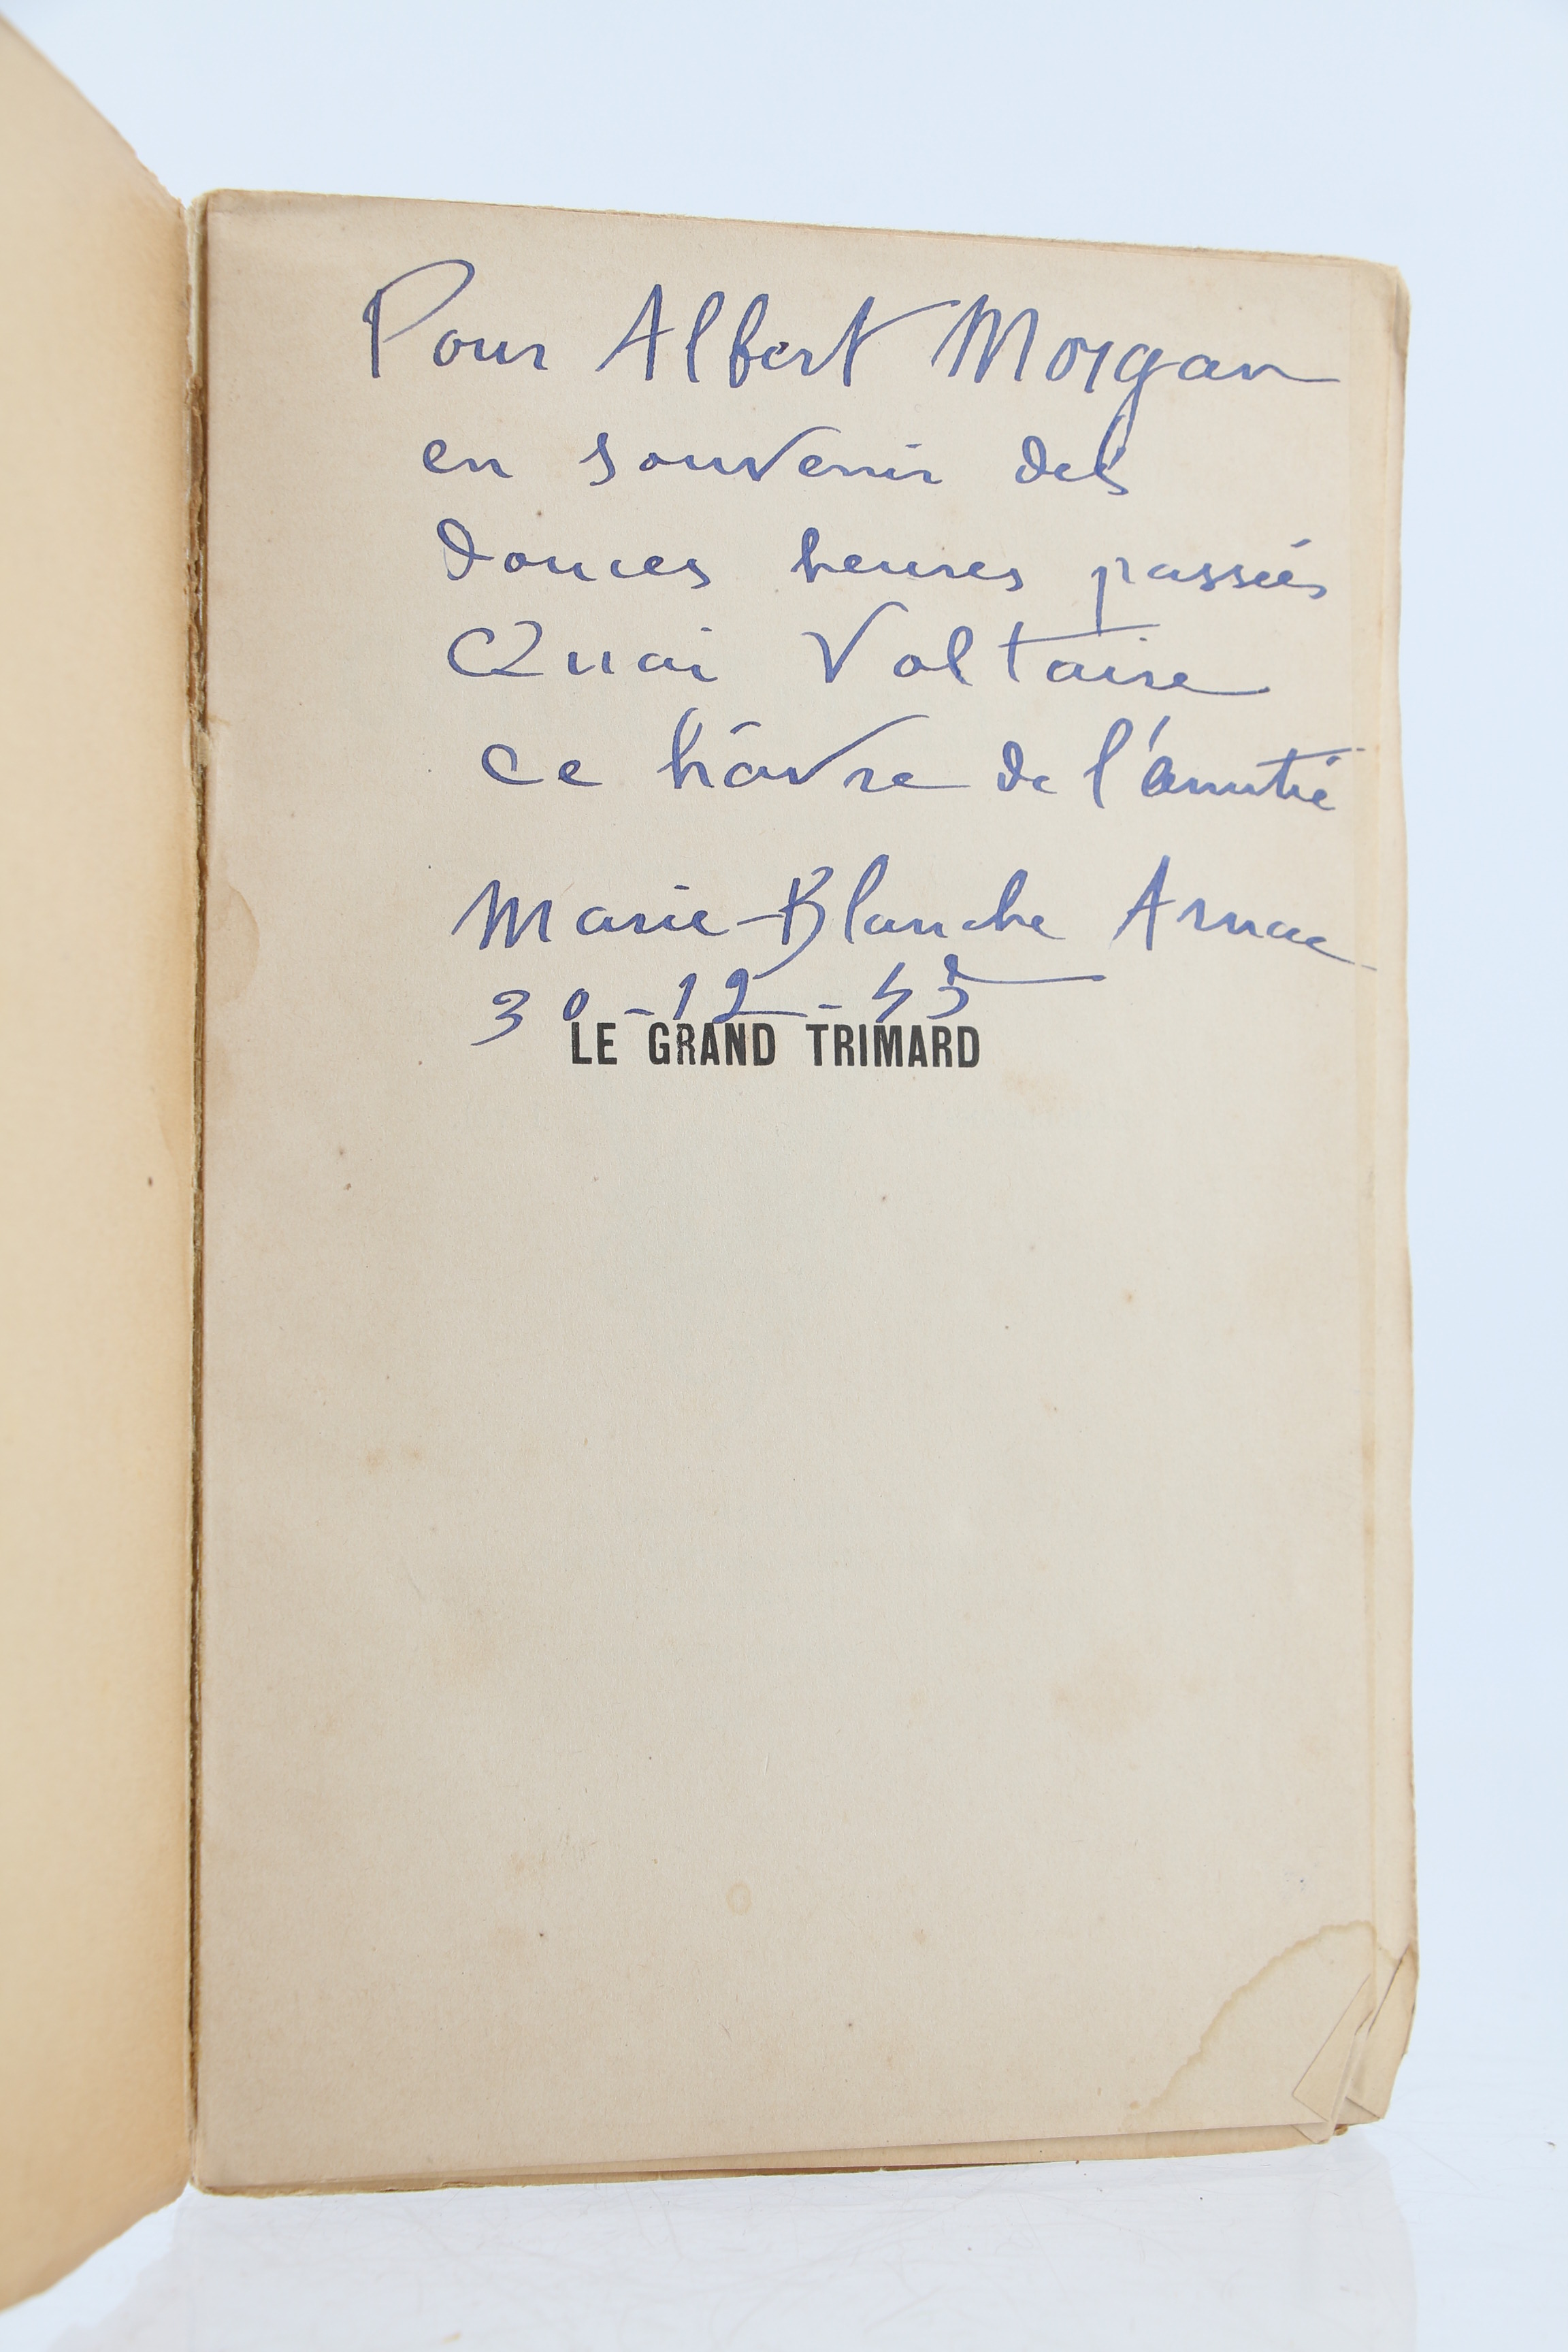 Pour Albert Morgan
en souvenir des
douces heures passées
Quai Voltaire
ce hâvre de l'amitié
Marie-Blanche Arnac
30-12-45
LE GRAND TRIMARD